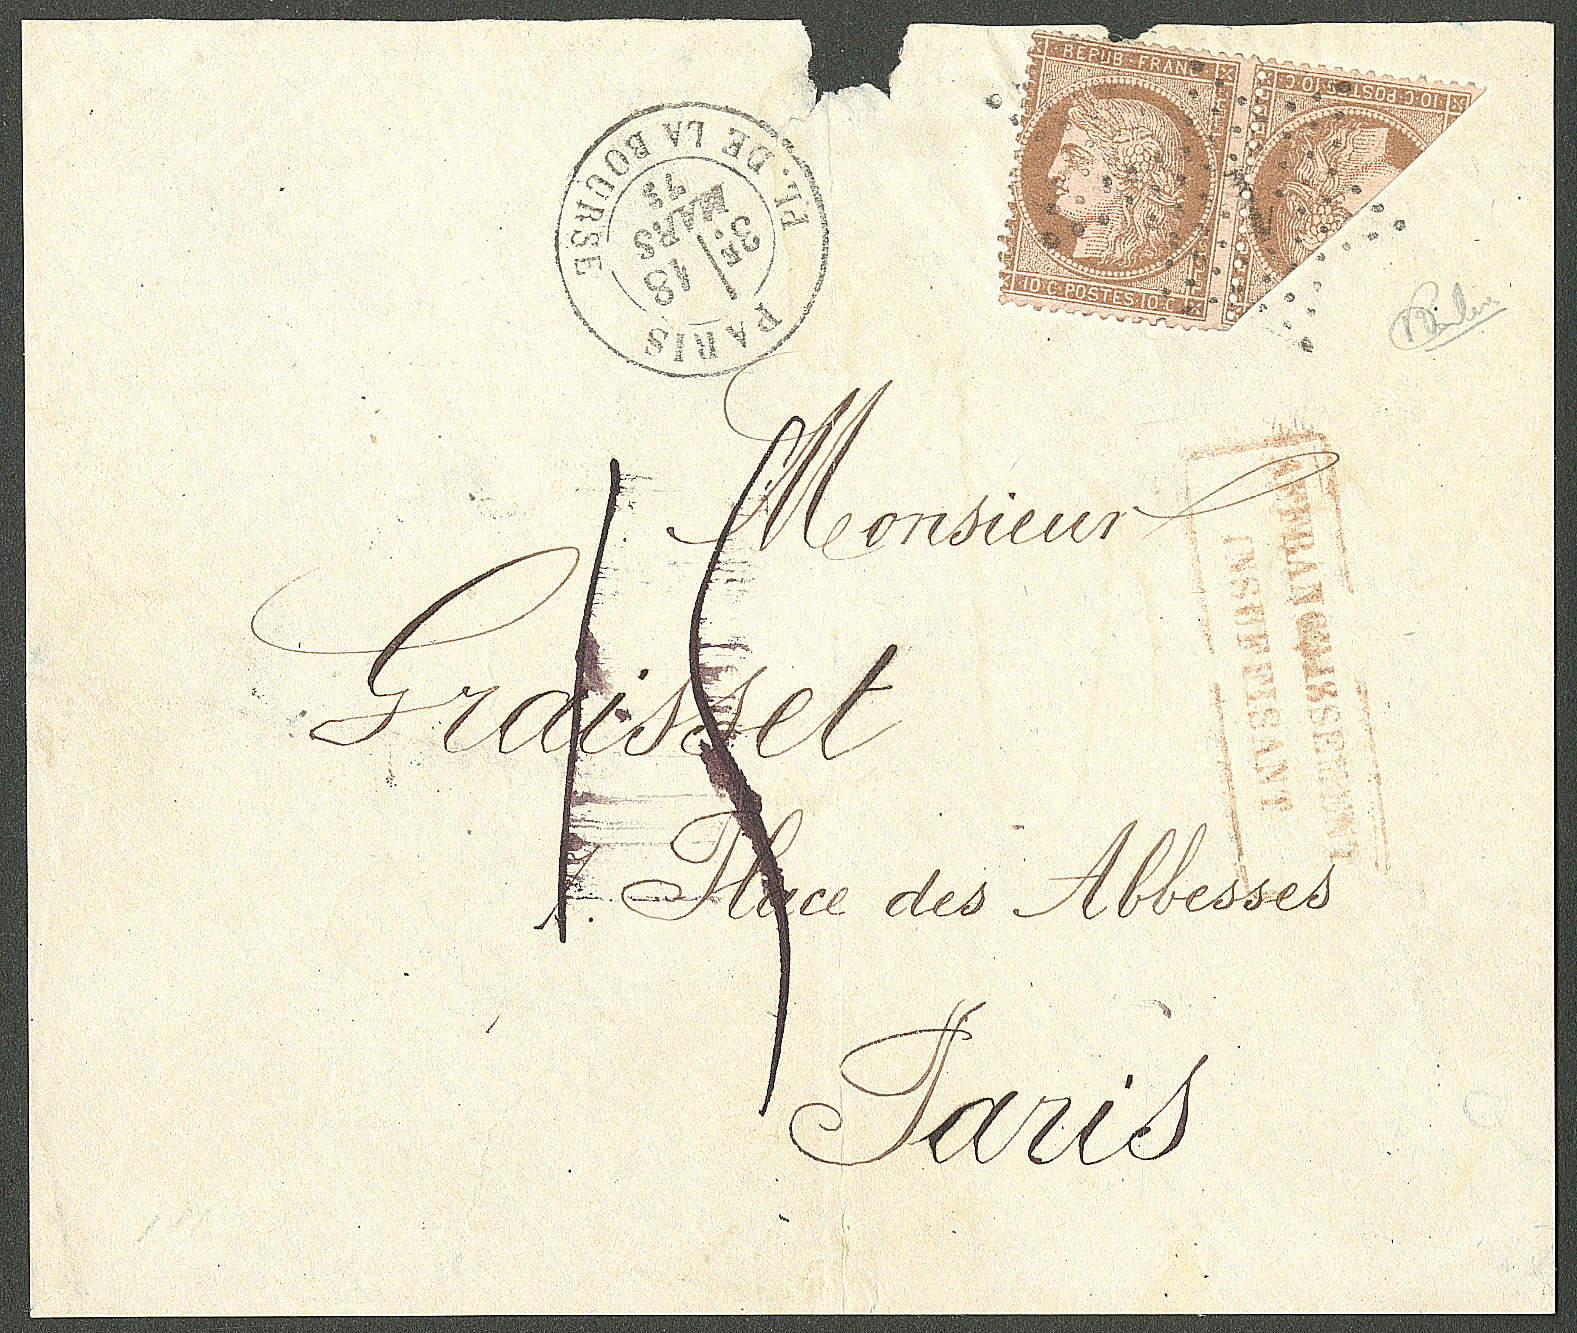 REPUB·FRANC
10·C·POSTES·10·C
10·C·POSTES·10·C
PL. DE LA BOURSE
3E
MARS
18
PARIS
AFFRANCHISSEMENT
INSUFFISANT
15
Monsieur
Graisset
Place des Abbesses
Paris